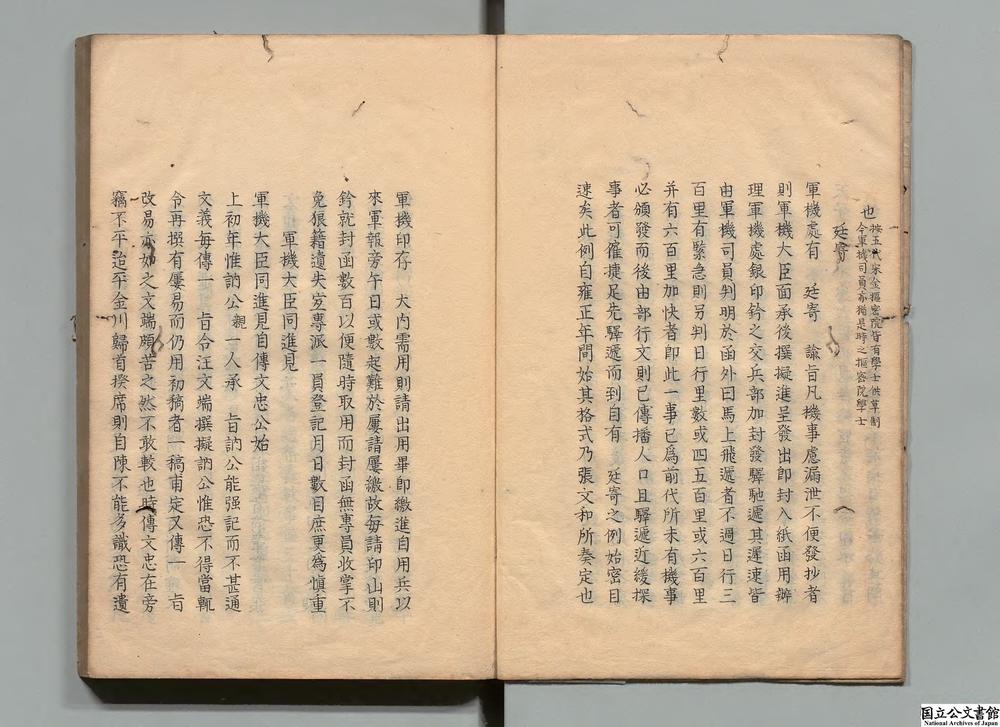 也 按五代宋金樞密院皆有學士供草制
令軍機司員亦猶是時之樞密院學士
廷寄
軍機處有 廷寄 諭旨凡機事慮漏泄不便發抄者
則軍機大臣面承後撰擬進呈發出即封入紙函用辦
理軍機處銀印鈐之交兵部加封發驛馳遞其遲速皆
由軍機司員判明於函外曰馬上飛遞者不過日行三
百里有緊急則另判日行里數或四五百里或六百里
并有六百里加快者即此一事已為前代所未有機事
必頒發而後由部行文則已傳播人口且驛遞近緩探
事者可僱捷足先驛遞而到自有 廷寄之例始密且
速矣此例自雍正年間始其格式乃張文和所奏定也
軍機印存 大內需用則請出用畢即繳進自用兵以
來軍報旁午日或數起難於屢請屢繳故每請印出則
鈐就封函數百以便隨時取用而封函無專員收掌不
免狼籍遺失岌專派一員登記月日數目庶更為慎重
軍機大臣同進見
軍機大臣同進見自傅文忠公始
上初年惟訥公親一人承 旨訥公能强記而不甚通
文義每傳一 旨令汪文端撰擬訥公惟恐不得當輒
令再撰有屢易而仍用初稿者一稿甫定又傳一 旨
改易亦如之文端頗苦之然不敢較也時傅文忠在旁
竊不平迨平金川歸首揆席則自陳不能多識恐有遺
国立公文書館
National Archives of Japan